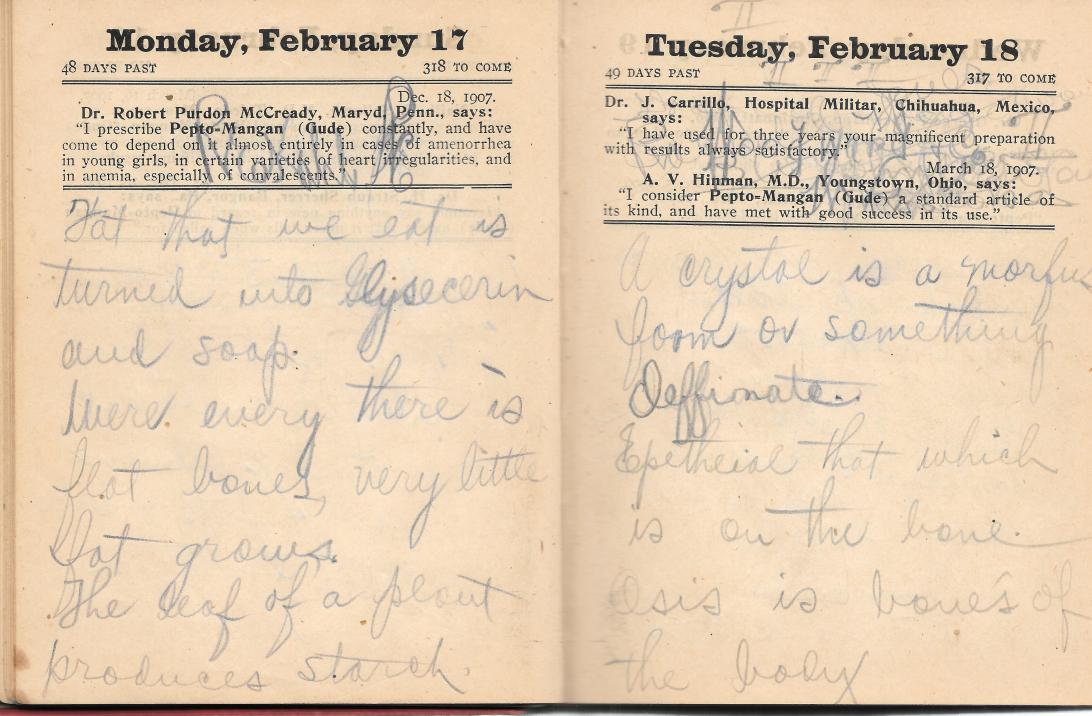 Monday, February 17
48 DAYS PAST 318 TO COME
Dec. 18, 1907.
Dr. Robert Purdon McCready, Maryd, Penn., says:
"I prescribe Pepto-Mangan (Gude) constantly, and have
come to depend on it almost entirely in cases of amenorrhea
in young girls, in certain varieties of heart irregularities, and
in anemia, especially of convalescents."
Fat that we eat is
turned into Glysecerin
and soap.
Were every there is
flat bones, very little
fat grows.
The leaf of a plant
produces starch.
Tuesday, February 18
49 DAYS PAST 317 TO COME
Dr. J. Carrillo, Hospital Militar, Chihuahua, Mexico,
says:
"I have used for three years your magnificent preparation
with results always satisfactory."
March 18, 1907.
A. V. Hinman, M.D., Youngstown, Ohio, says:
"I consider Pepto-Mangan (Gude) a standard article of
its kind, and have met with good success in its use."
A crystal is a
foom or something
Deffionate.
Epetheial that which
is on the bone.
Osis is bones of
the body